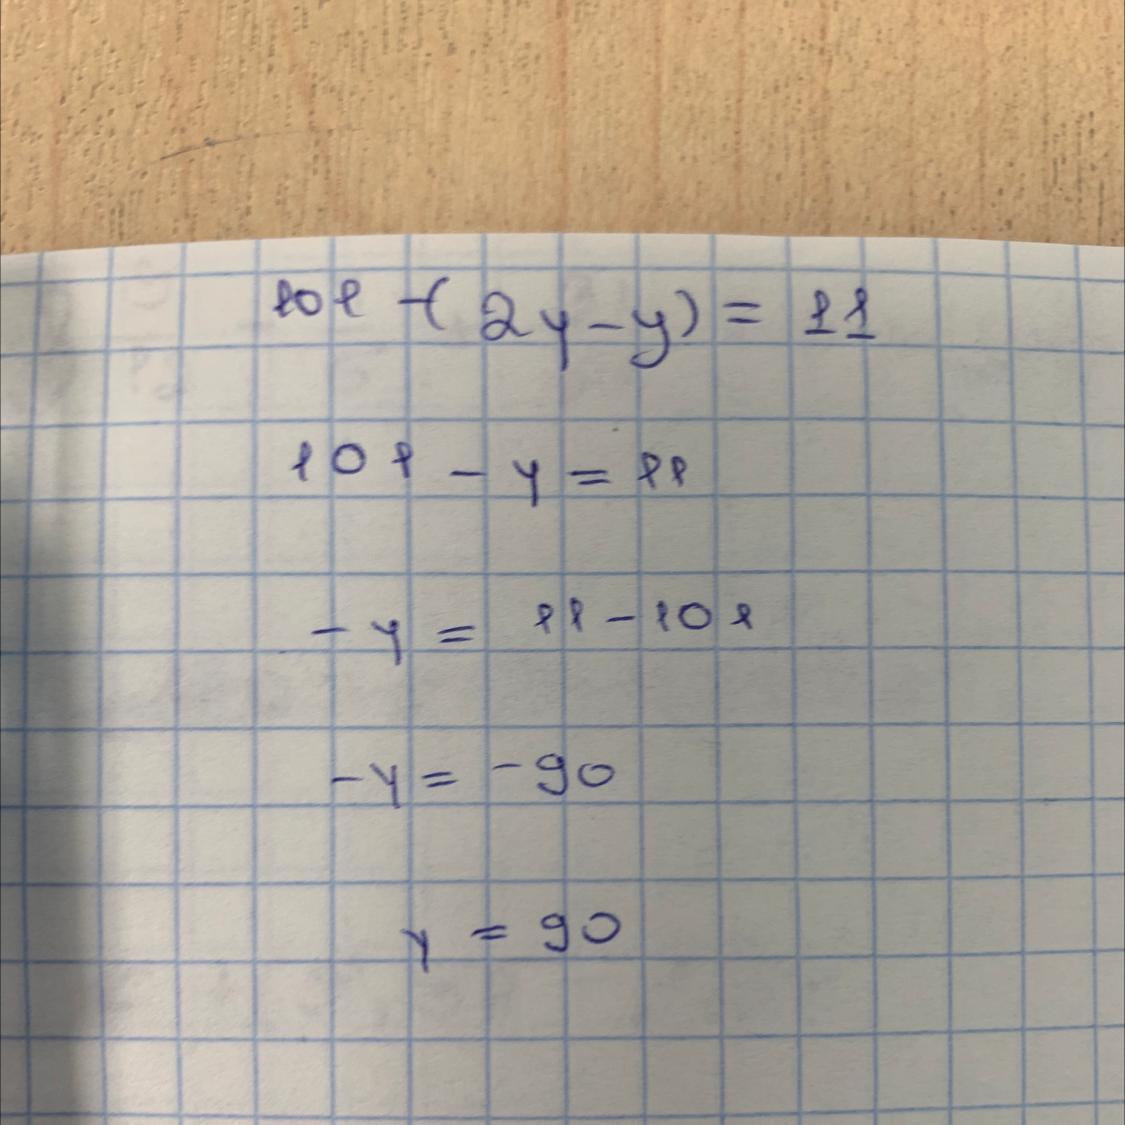 101 -( 2y - y) = 11
101 - y = 11
- y = 11 - 101
- y = - 90
y = 90